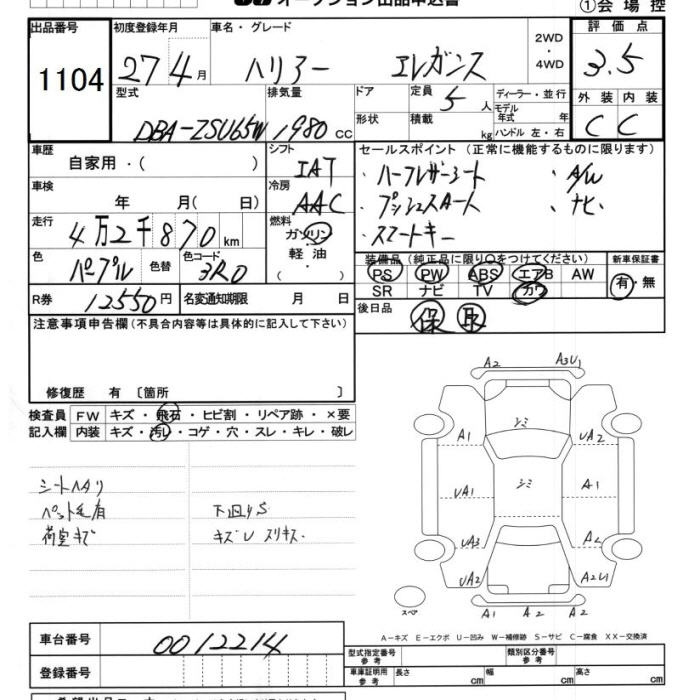 オークション出品申込書
①会場控
出品番号 初度登録年月 車名・グレード 2WD ・4WD 評価点
1104 27 4月 ハリアー エレガンス 3.5
型式 排気量 ドア 定員 5 人 ディーラー・並行 外装 内装
DBA-ZSU65W 1980 cc 形状 積載 kg モデル年式 年 ハンドル 左・右 C C
車歴 シフト セールスポイント (正常に機能するものに限ります)
自家用・( ) IAT ・ハーフレザーシート ・A/W
車検 冷房 ・プッシュスタート ・ナビ
年 月( 日) AAC ・スマートキー
走行 燃料
4万2千870km ガソリン
色 色替 色コード 軽油
パープル 3R0 ( )
装備品 (純正品に限り○をつけてください) 新車保証書
PS PW ABS エアB AW 有・無
SR ナビ TV カワ
R券 12550円 名変通知期限 月 日 後日品 保 取
注意事項申告欄(不具合内容等は具体的に記入して下さい)
修復歴 有 〔箇所 〕
検査員 FW キズ・飛石・ヒビ割・リペア跡・×要
記入欄 内装 キズ・汚レ・コゲ・穴・スレ・キレ・破レ
シートヘタリ
ペット毛有 下回りS
荷室キズ キズU スリキズ
A2 A3U1
シミ
A1 UA2
シミ
UA1 A1
UA3 A2
UA2 A2U1
スペア A1 A2 A2
A-キズ E-エクボ U-凹み W-補修跡 S-サビ C-腐食 XX-交換済
車台番号 0012214
型式指定番号 参考 類別区分番号 参考
登録番号 車庫証明用 参考 長さ cm 幅 cm 高さ cm